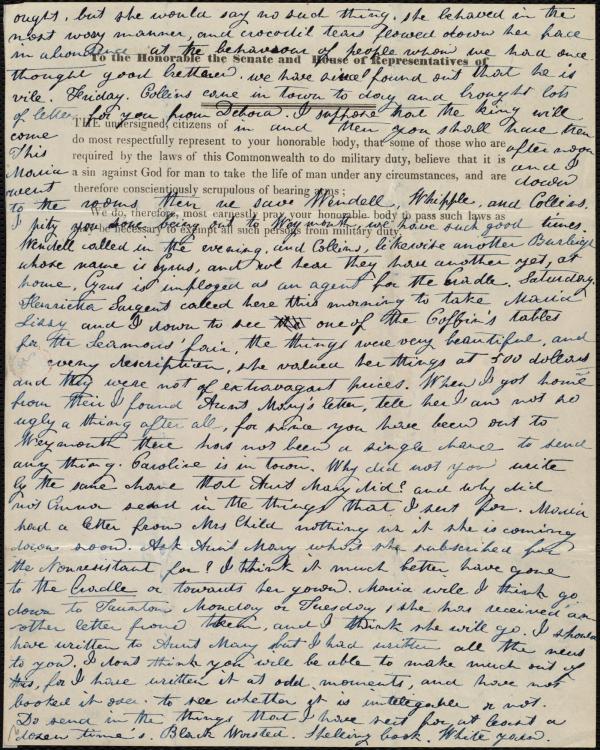 ought, but she would say no such thing. she behaved in the
most wory manner, and crocodil tears flowed down her face
in at the behaviour of people whom we had once
To the Honorable the Senate and House of Representatives of
thought good bretheren. we have since found out that he is
vile. Friday. Collins came in town to day and brought lots
of letters for you from Debora. I suppose that the king will
come in and then you shall have them
THE undersigned, citizens of
This after noon
do most respectfully represent to your honorable body, that some of those who are
Maria and I
required by the laws of this Commonwealth to do military duty, believe that it is
went down
a sin against God for man to take the life of man under any circumstances, and are
therefore conscientiously scrupulous of bearing arms;
to the rooms then we saw Wendell, Whipple, and Collins.
We do, therefore, most earnestly pray your honorable body to pass such laws as
I pity you for being out to Weymouth we have such good times.
may be necessary to exempt all such persons from military duty.
Wendell called in the evening, and Collins, likewise another Burleigh
whose name is Cyrus, and we hear they have another yet, at
home, Cyrus is imployed as an agent for the Cradle. Saturday.
Henrietta Sargent called here this morning to take Maria
Lizzy and I down to see one of the Coffin's tables
for the Seamens' fair, the things were very beautiful, and
every description, she valued her things at 500 dollars
and they were not of extravagant prices. When I got home
from their I found Aunt Mary's letter, tell her I am not so
ugly a thing after all, for since you have been out to
Weymouth there has not been a single chance to send
any thing. Caroline is in town. Why did not you write
by the same chane that Aunt Mary did? and why did
not Emma send in the things that I sent for. Maria
had a letter from Mrs Child nothing in it she is coming
down soon. Ask Aunt Mary what she subscribed for
the Nonresistant for? I think it much better have gone
to the Cradle or towards her gown. Maria will I think go
down to Taunton Monday or Tuesday, she has received an
other letter from them, and I think she will go. I should
have written to Aunt Mary but I had written all the news
to you. I dont think you will be able to make much out of
this, for I have written it at odd moments, and have not
looked it over to see whether it is intelegable or not.
Do send in the things that I have sent for, at least a
dozen time's. Black Worsted. Spelling book. White yarn.